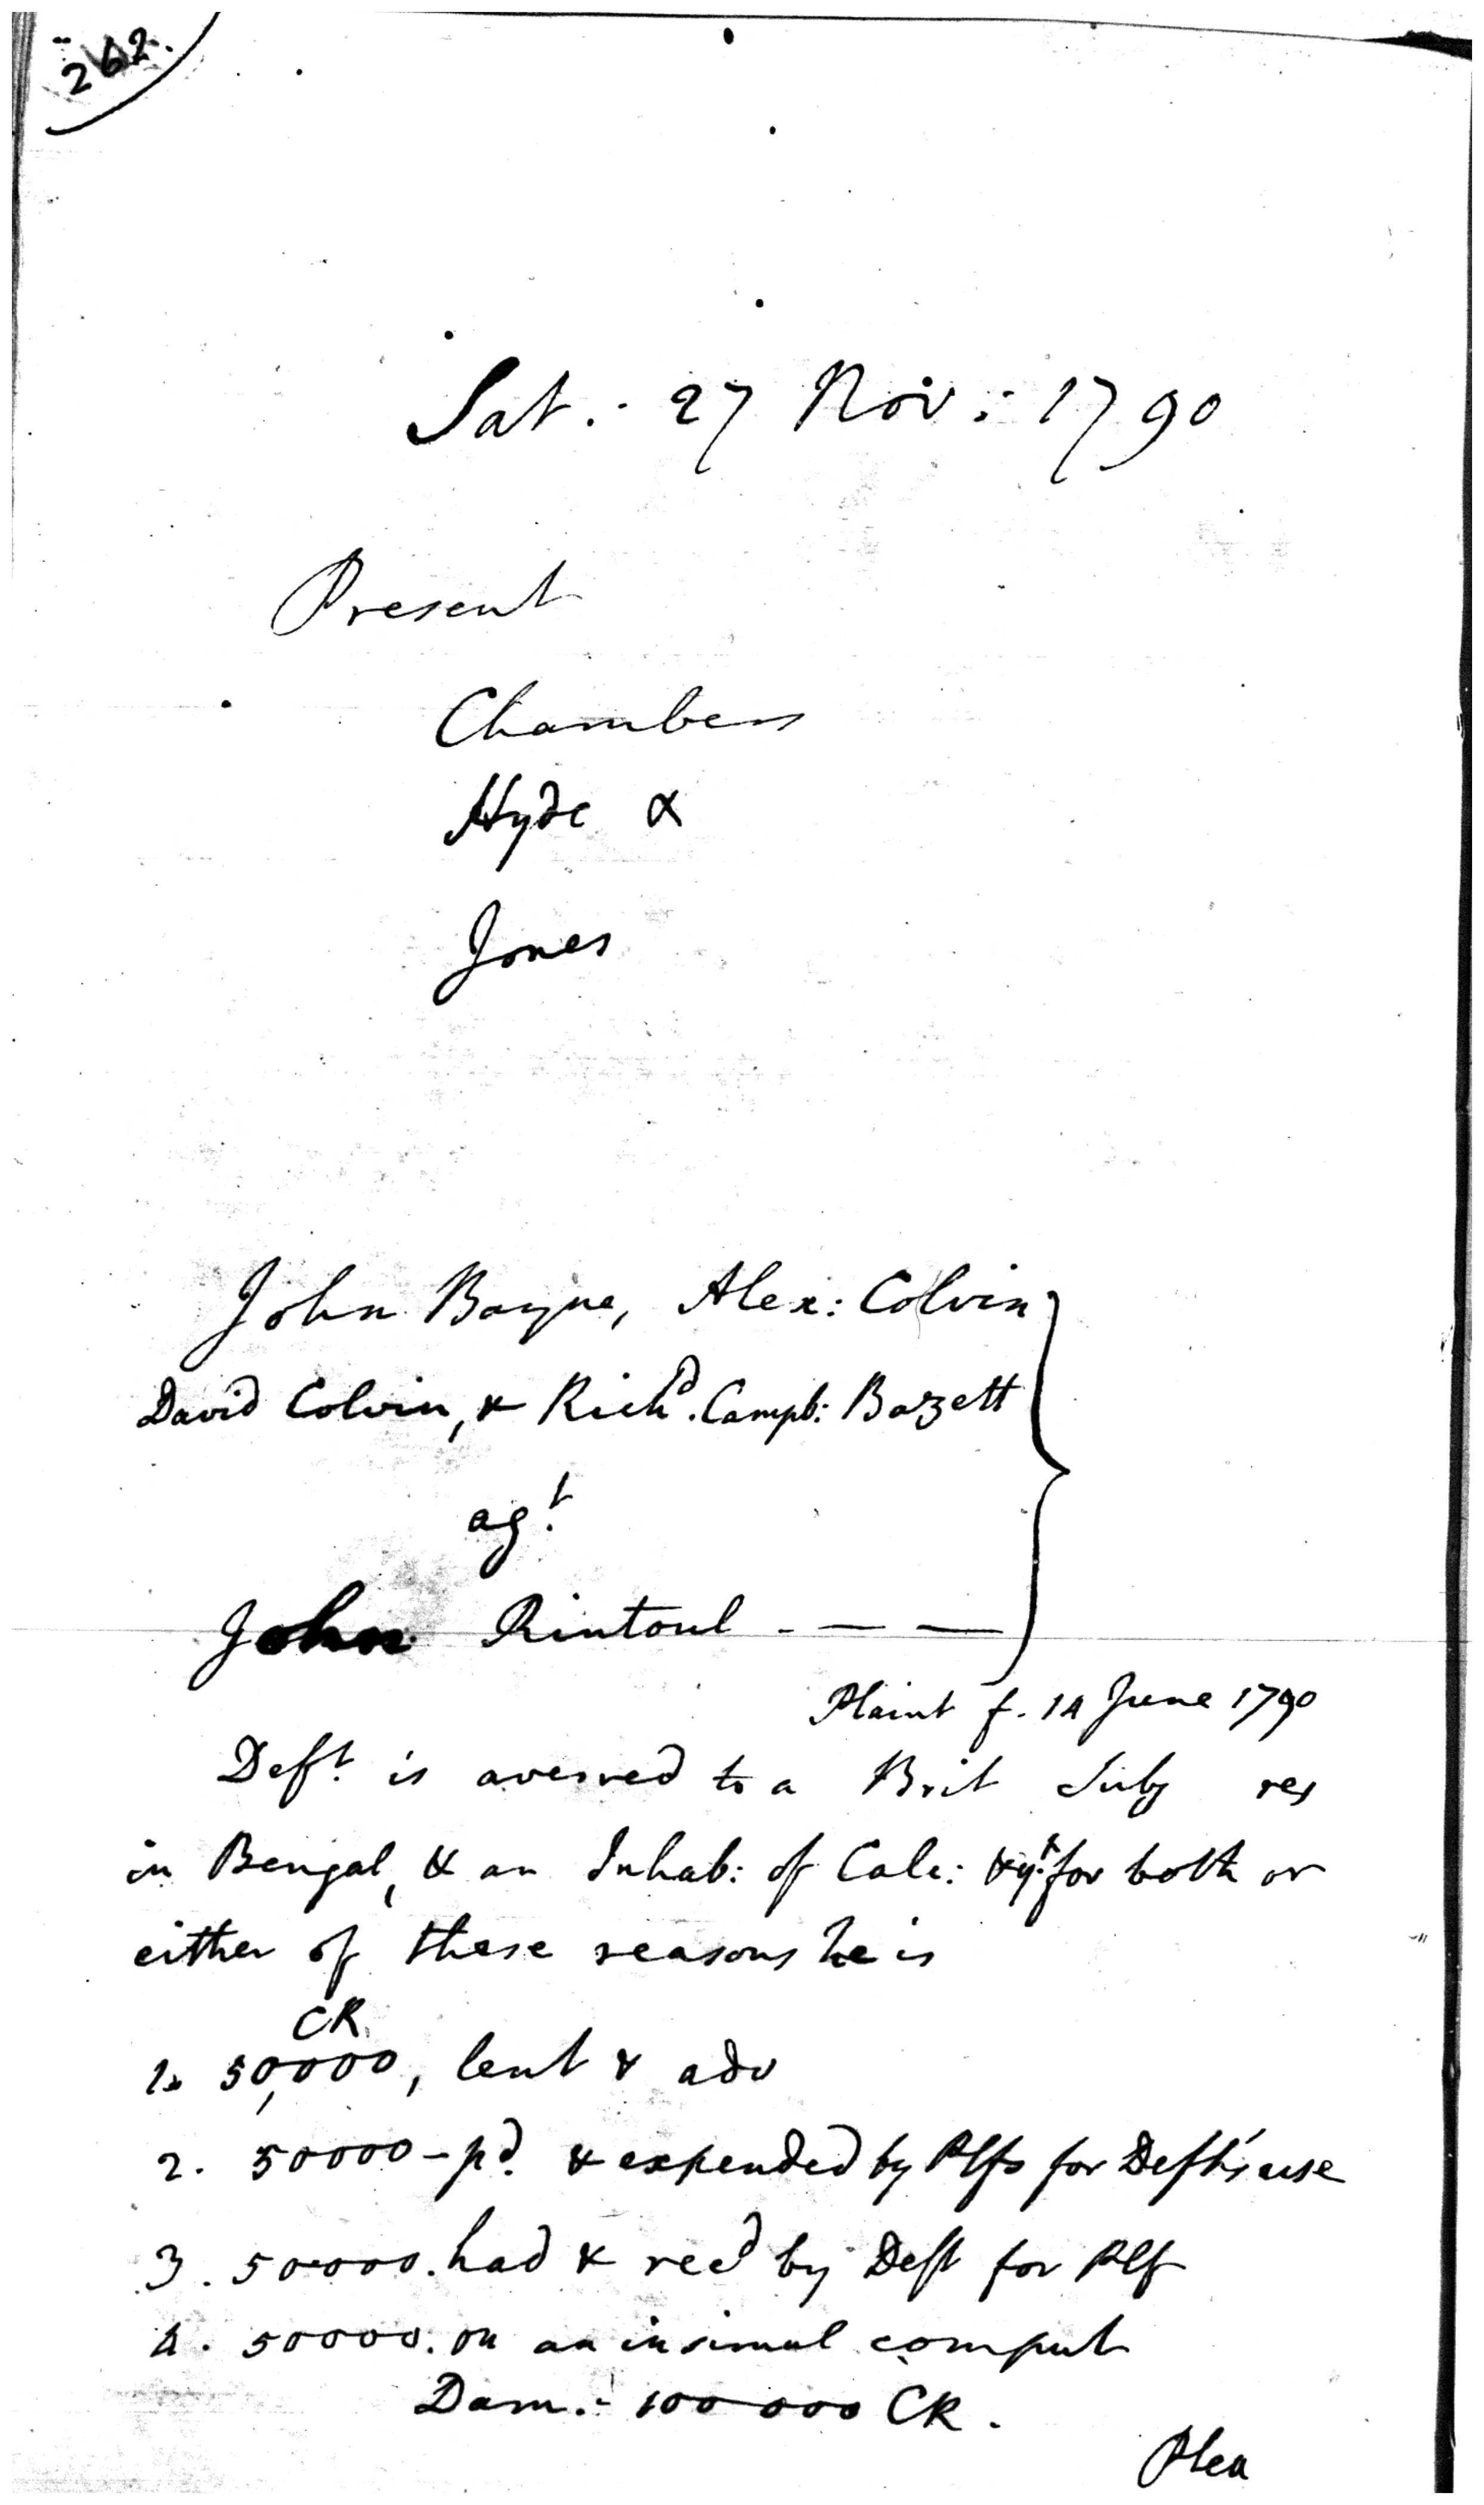 262.
Sat. 27 Nov: 1790
Present
Chambers
Hyde &
Jones
John Bayne, Alex: Colvin
David Colvin, & Richd. Campb: Bazett
agt.
John Rintoul - — —
Plaint f. 14 June 1790
Deft. is averred to a Brit Subj res
in Bengal, & an Inhab: of Calc: & yt. for both or
either of these reasons he is
CR
1. 50,000, lent & adv
2. 50000 - pd. & expended by Plfs for Deft's use
3. 50000. had & recd by Deft for Plf
4. 50000. on an insimul comput
Dam: 100000 CR.
Plea